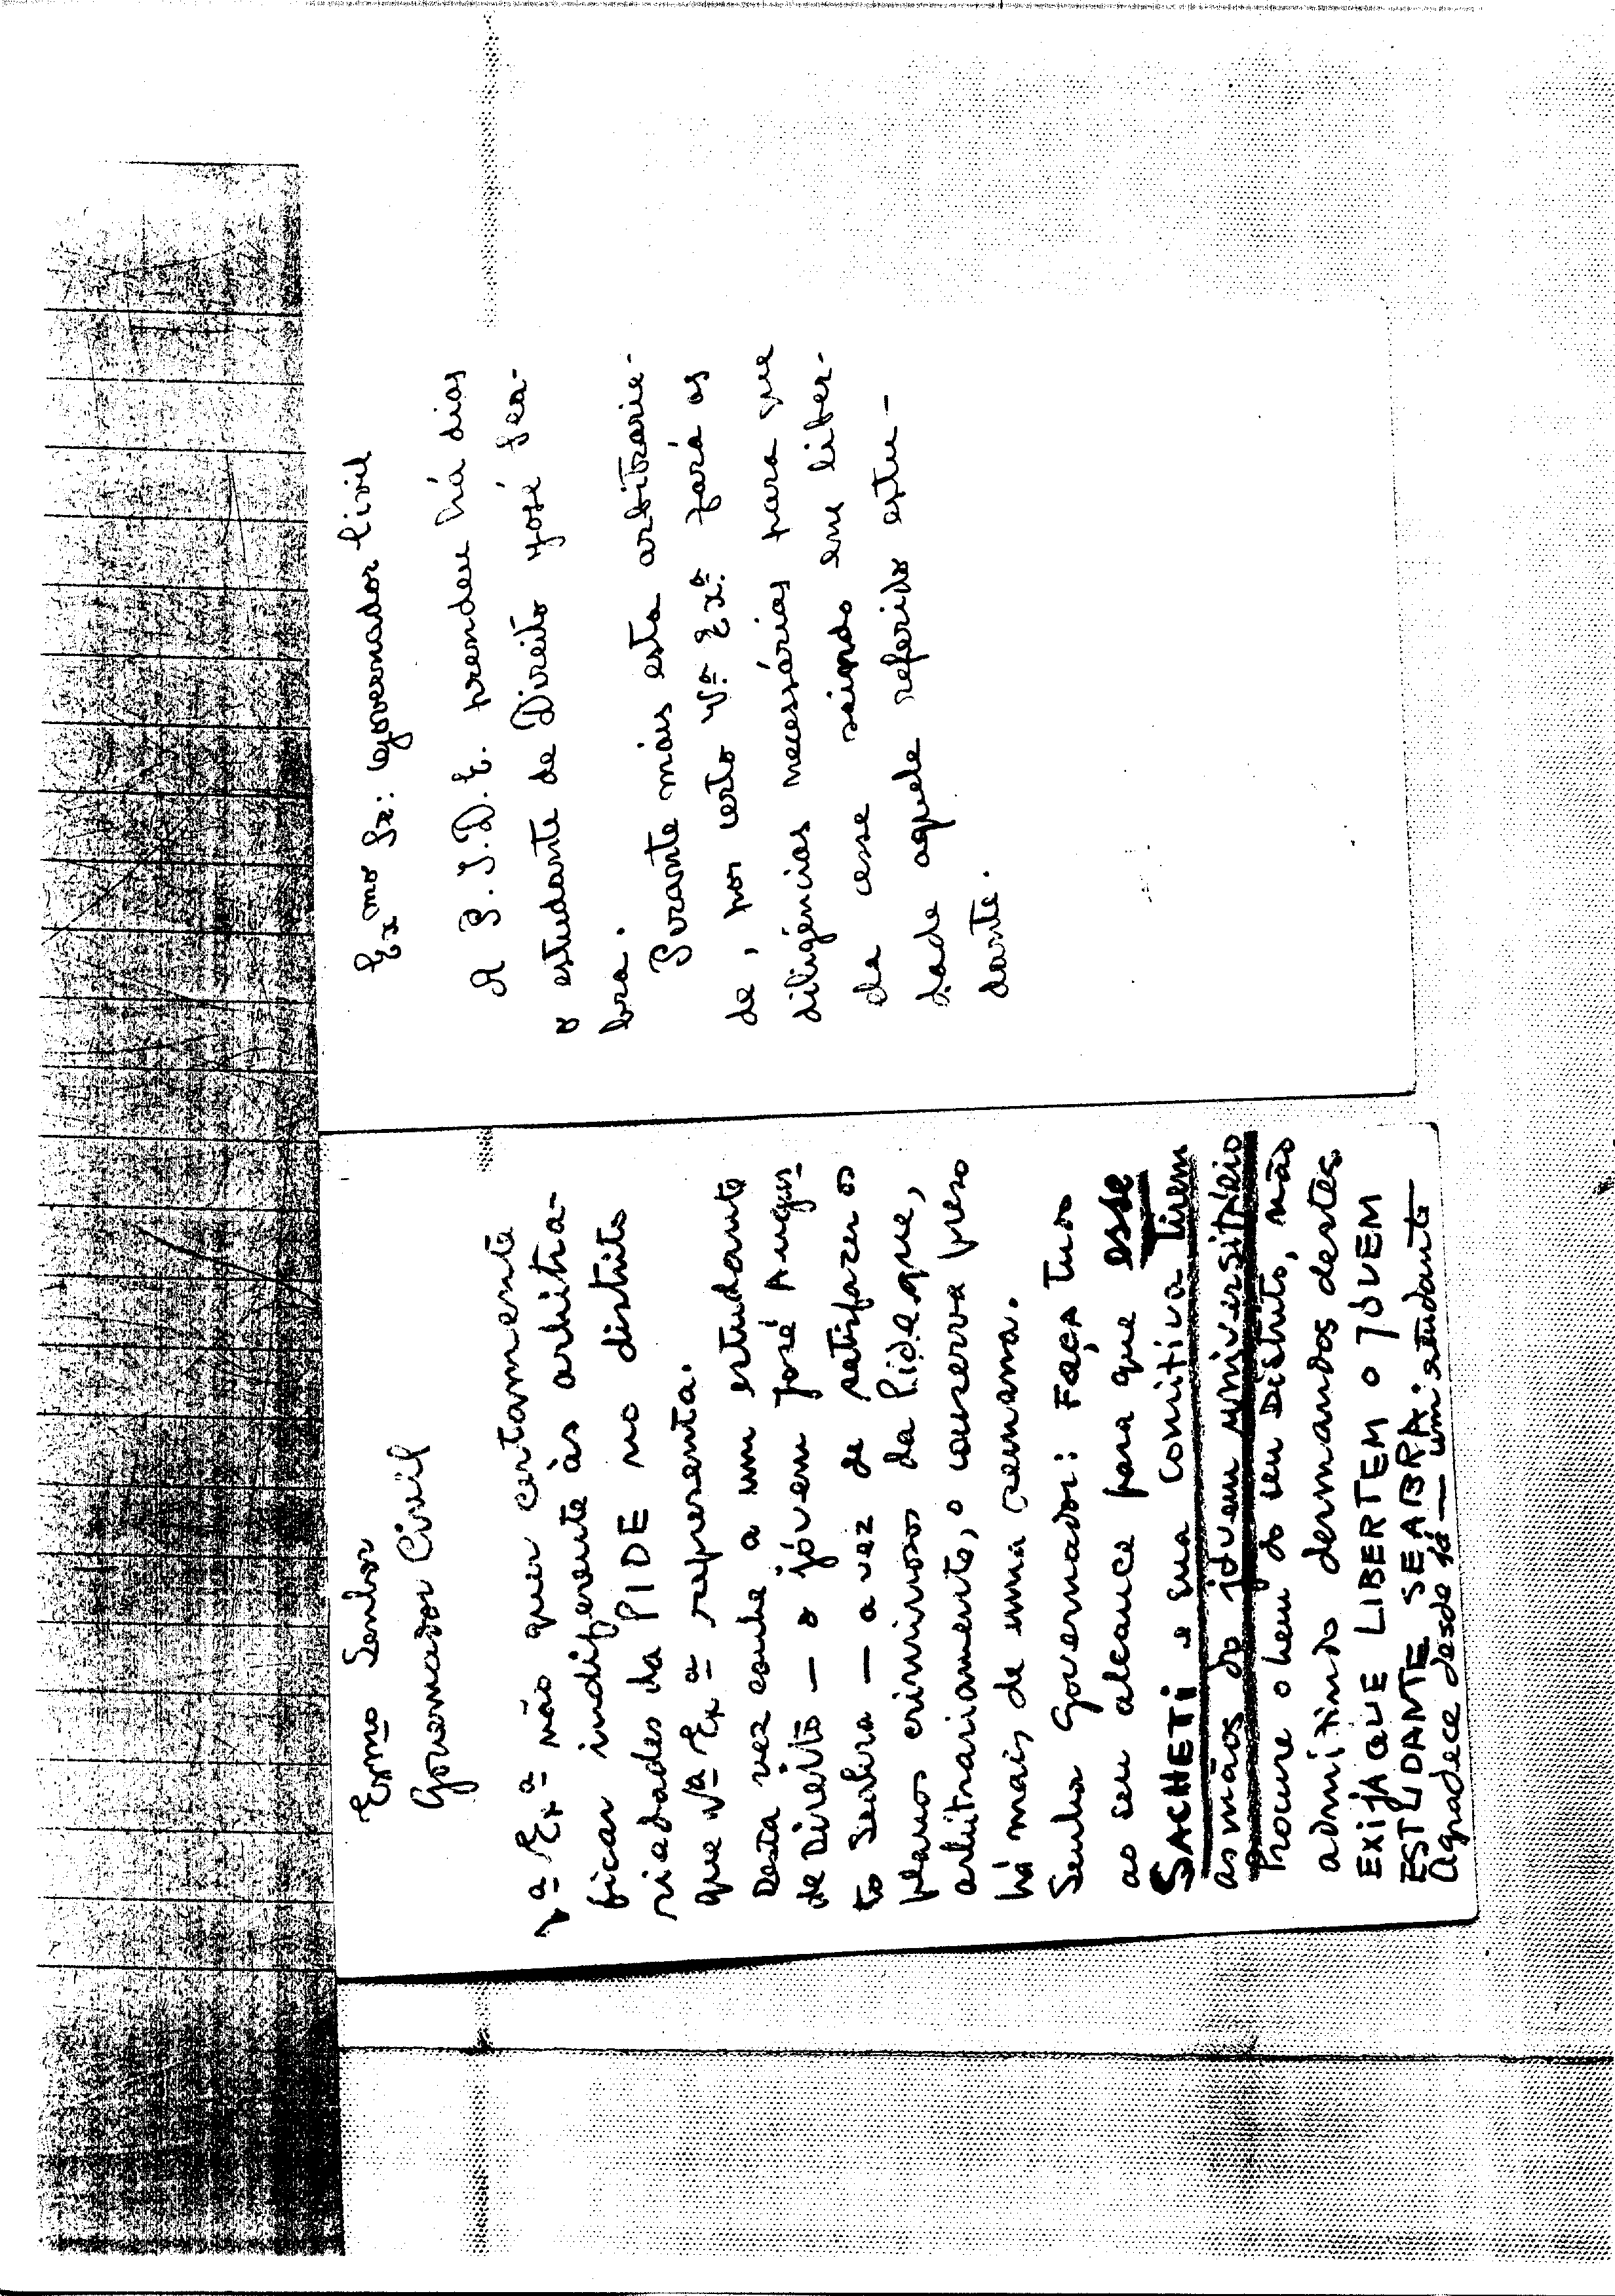 Exmo Senhor
Governador Civil
Vª Exª não quer certamente
ficar indiferente às arbitra-
riedades da PIDE no distrito
que Vª Exª representa.
Desta vez coube a um estudante
de Direito — o jóvem José Augus-
to Seabra — a vez de satisfazer os
planos criminosos da Pide que,
arbitrariamente, o conserva preso
há mais de uma semana.
Senhor Governador: Faça tudo
ao seu alcance para que esse
SACHETI e sua comitiva tirem
as mãos do jóvem universitário
Procure o bem do seu Distrito, não
admitindo desmandos destes.
EXIJA QUE LIBERTEM O JOVEM
ESTUDANTE SEABRA.
Agradece desde já — um estudante
Exmo Sr: Governador Civil
A P.I.D.E. prendeu há dias
o estudante de Direito José Sea-
bra.
Perante mais esta arbitrarie-
de, por certo Vª Exª. fará as
diligências necessárias para que
ela cesse saindo em liber-
dade aquele referido estu-
dante.